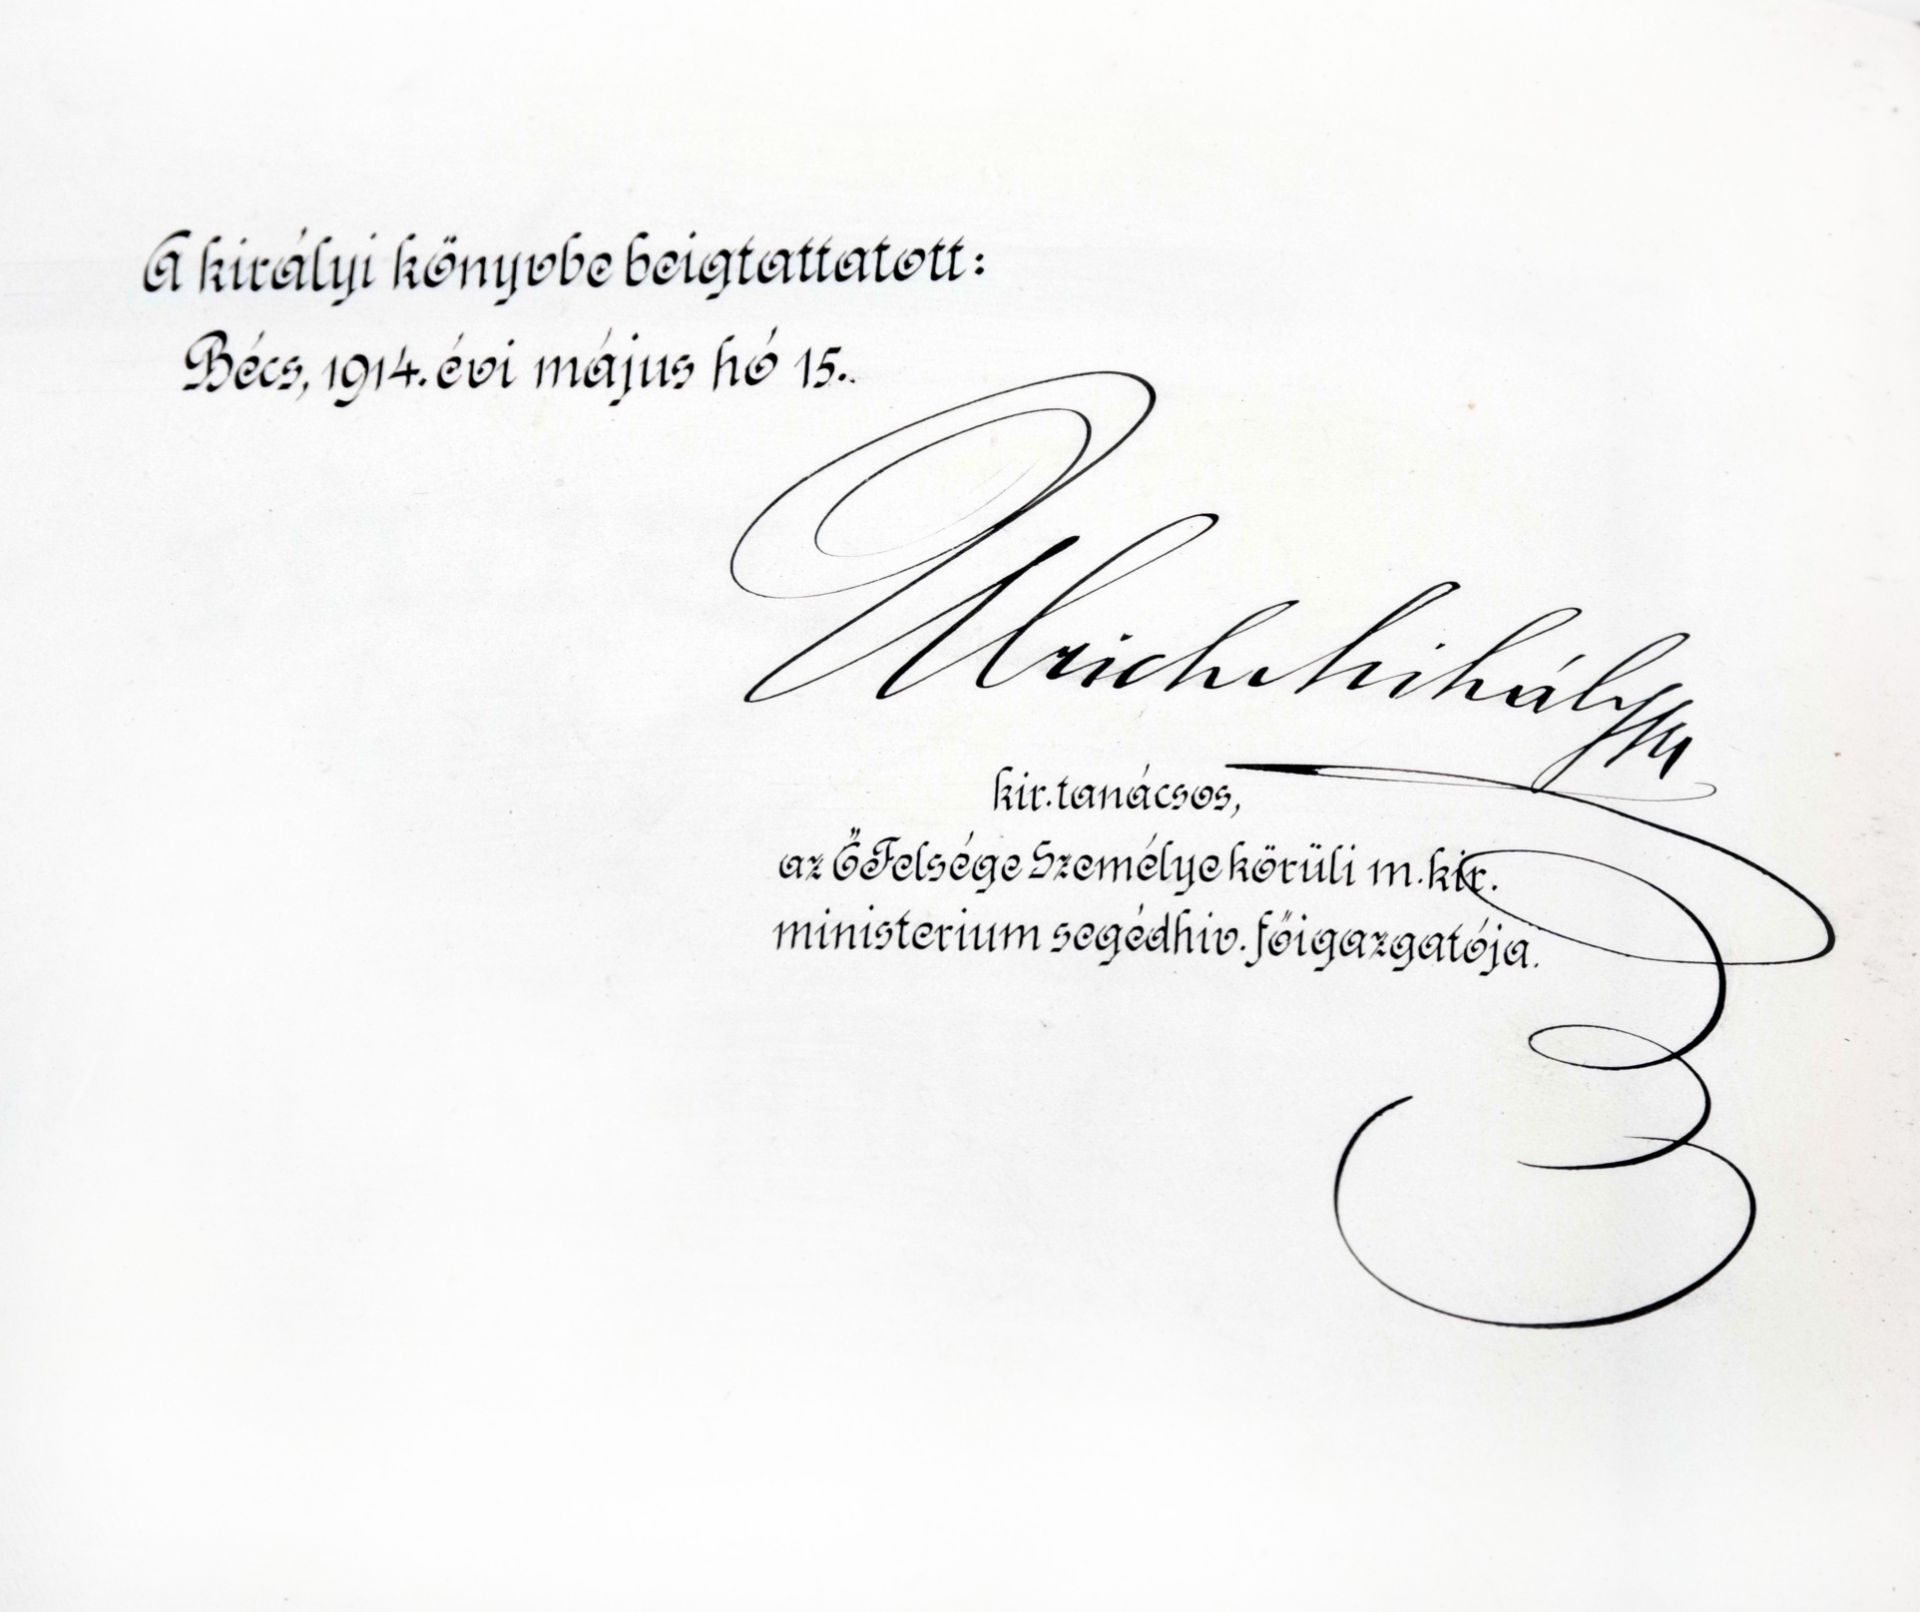 A királyi könyvbe beigtattatott:
Bécs, 1914. évi május hó 15.
Ulrich Mihály
kir. tanácsos,
az Ő Felsége Személye körüli m. kir.
ministerium segédhiv. főigazgatója.